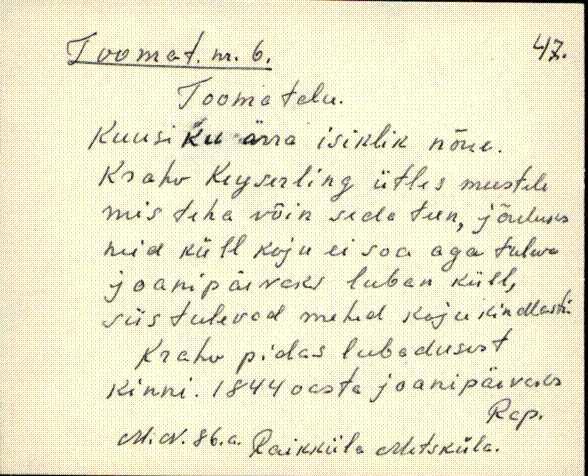 Toomat. nr. 6.
47.
Toomatalu.
Kuusiku ärra isiklik nõue.
Krahv Keyserling ütles meestele
mis teha võin seda teen, jõuluks
neid küll koju ei saa aga tuleva
joanipäivaks luban küll,
siis tulevad mehed koju kindlasti.
Krahv pidas lubadusest
kinni. 1844 aasta joanipäivaks
Rap.
M.N. 86.a. Raikküla Metsküla.